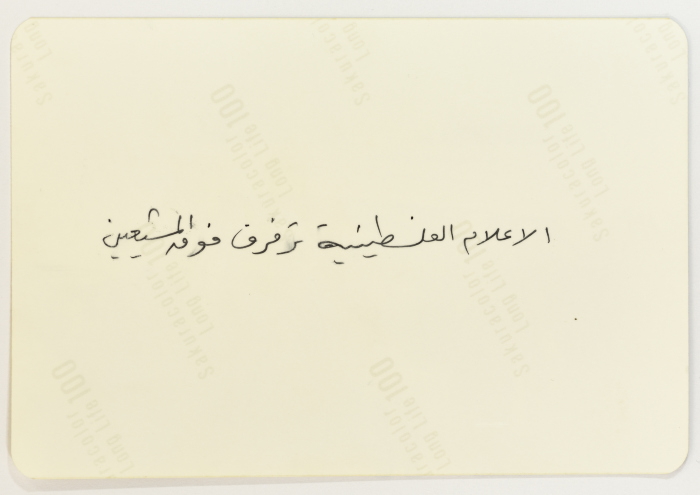 الاعلام الفلسطينية ترفرف فوق المشيعين
Long Life 100
Sakuracolor
Long Life 100
Sakuracolor
Long Life 100
Sakuracolor
Long Life 100
Sakuracolor